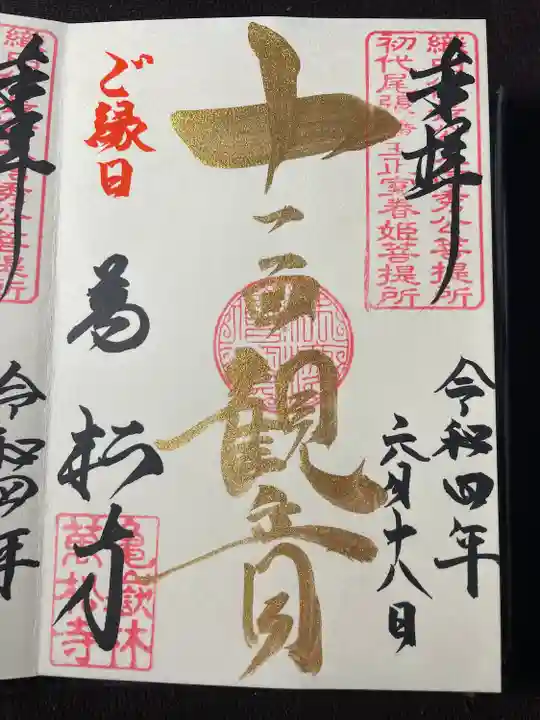 奉拝
初代尾張藩主正室春姫菩提所
令和四年
六月十八日
十一面観音
ご縁日
萬松寺
亀嶽林
萬松寺
奉拝
令和四年